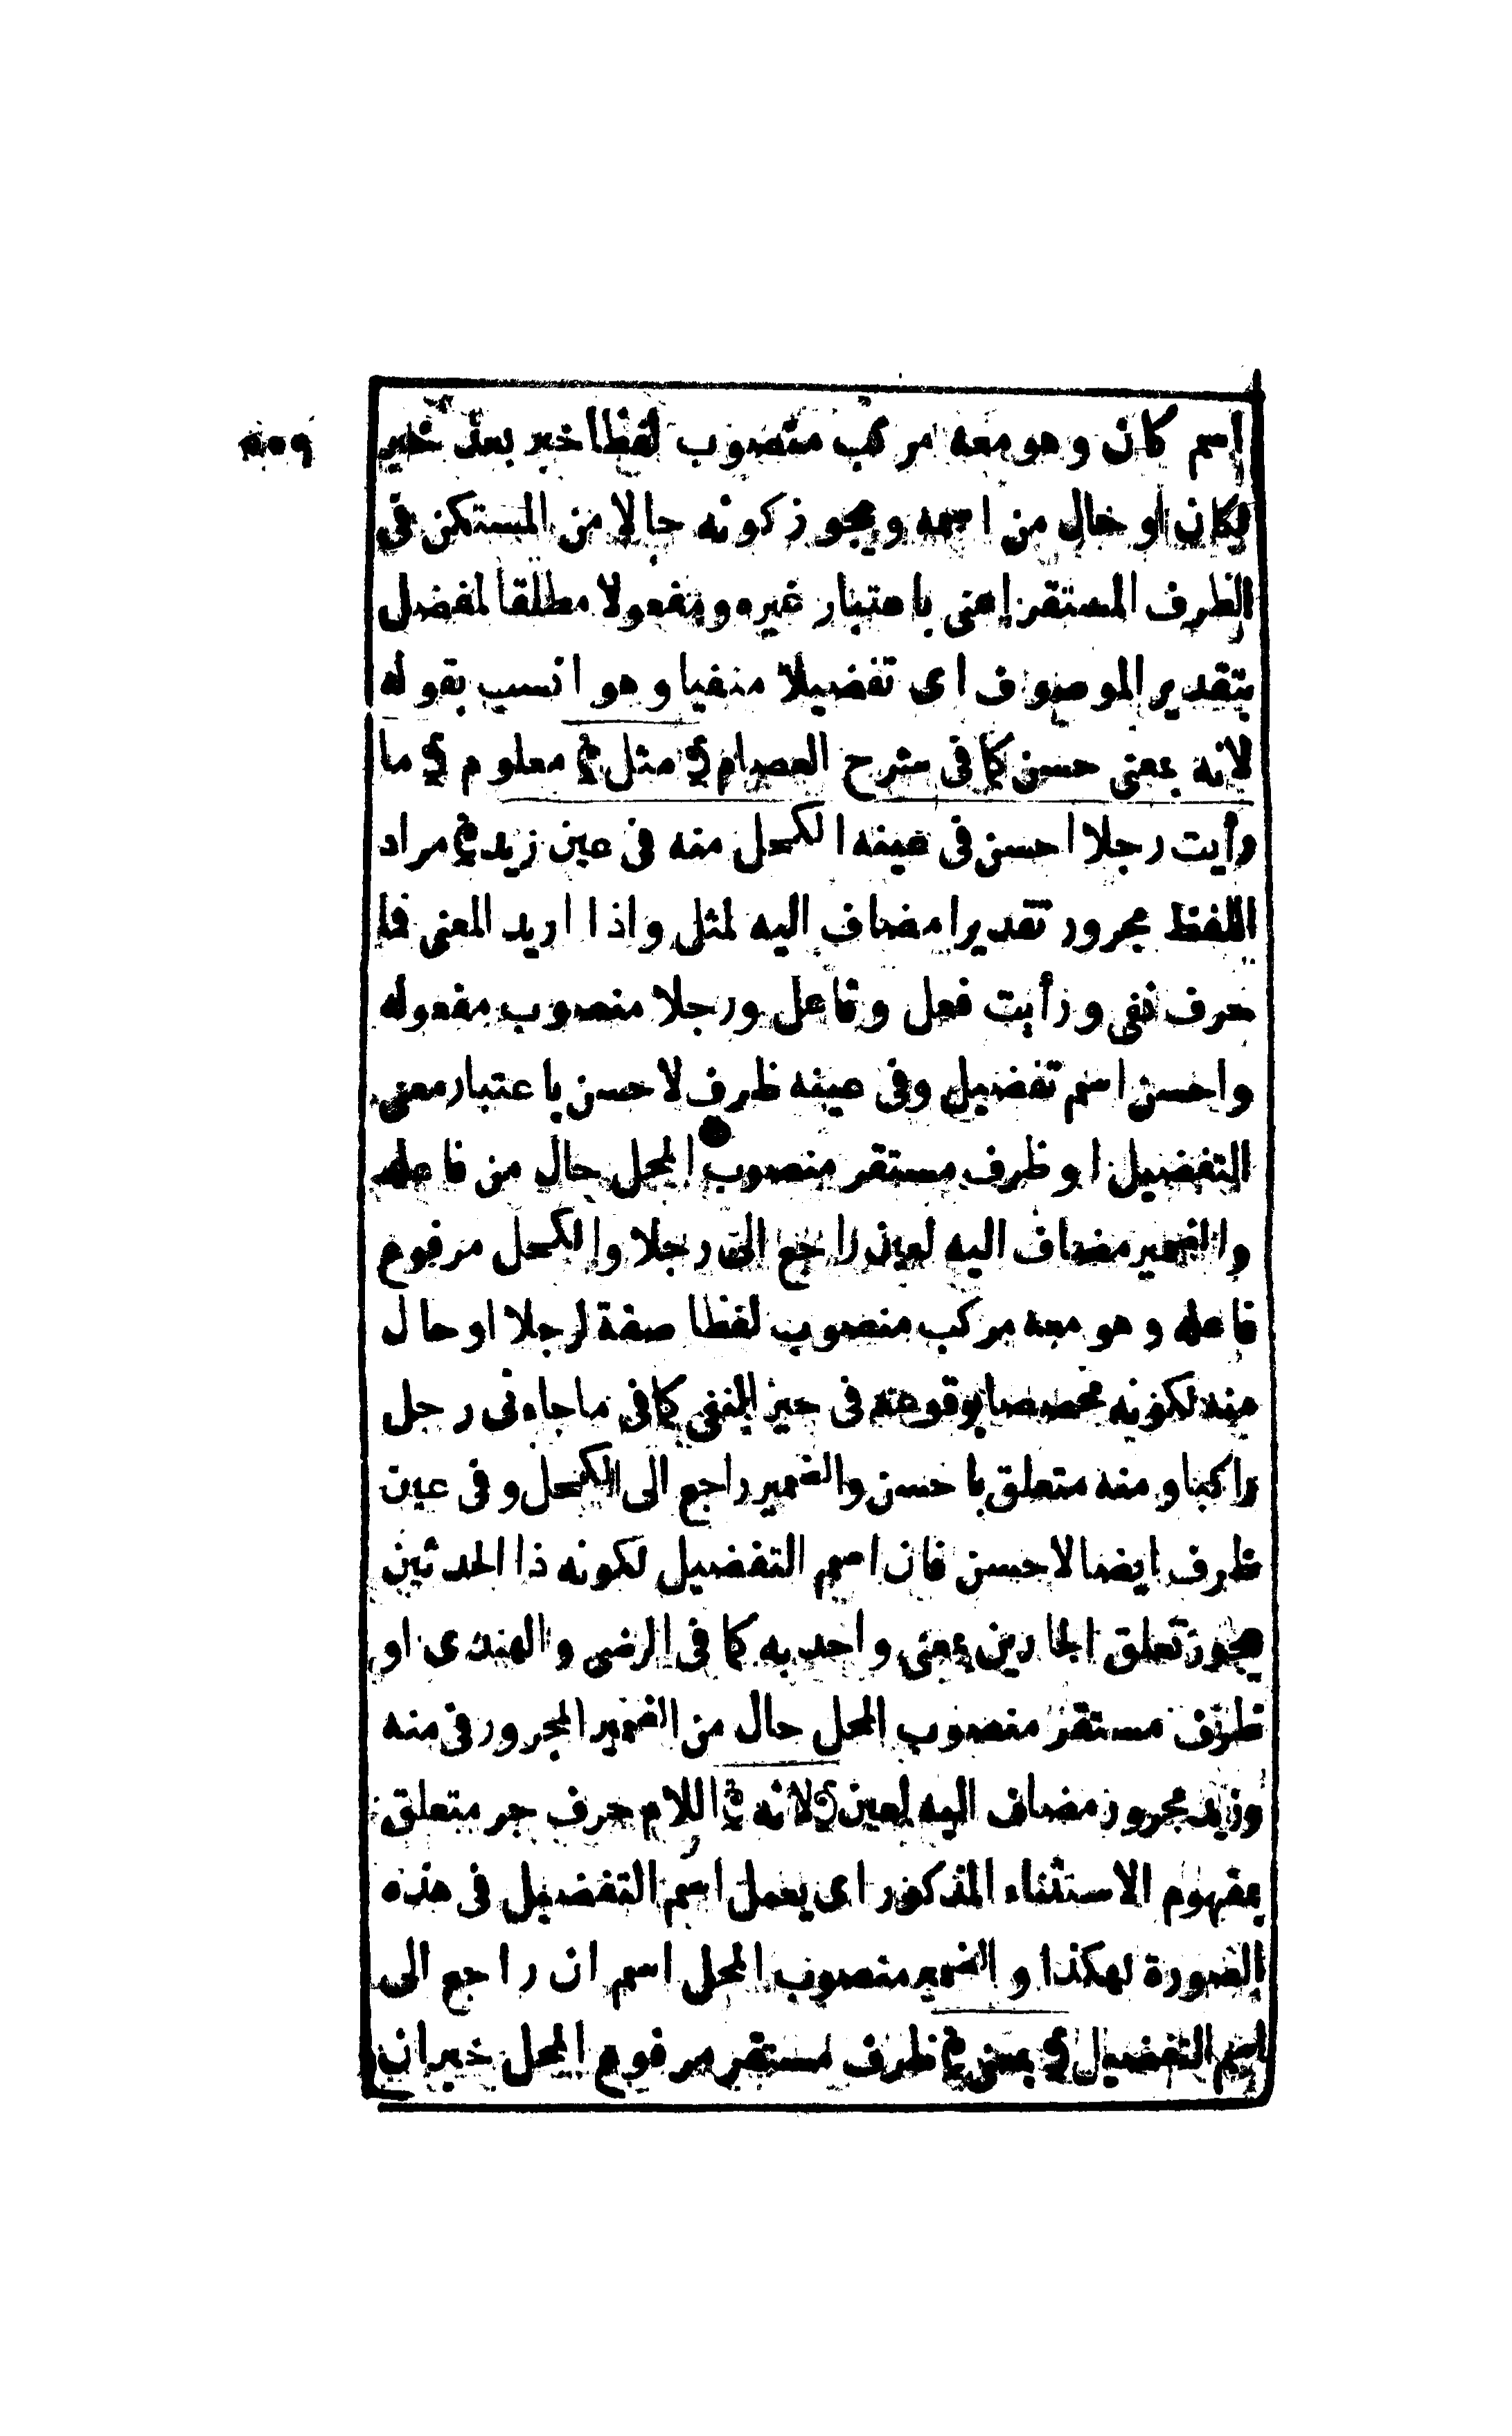 اسم كان وهو معه مركب منصوب لفظا خبر بعد خبر
لكان او حال من اسمه ويجوز كونه حالا من المستكن فى
الظرف المستقر اعنى باعتبار غيره ومفعولا مطلقا لمفضل
بتقدير الموصوف اى تفضيلا منفيا وهو انسب بقوله
لانه بمعنى حسن كما فى شرح العصام ﴾ مثل ﴿ معلوم ﴾ ما
رأيت رجلا احسن فى عينه الكحل منه فى عين زيد ﴿ مراد
اللفظ مجرور تقديرا مضاف اليه لمثل واذا اريد المعنى فما
حرف نفى ورأيت فعل وفاعل ورجلا منصوب مفعوله
واحسن اسم تفضيل وفى عينه ظرف لاحسن باعتبار معنى
التفضيل او ظرف مستقر منصوب المحل حال من فاعله
والضمير مضاف اليه لعين راجع الى رجلا والكحل مرفوع
فاعله وهو معه مركب منصوب لفظا صفة لرجلا او حال
منه لكونه مخصصا بوقوعه فى حيز النفى كما فى ما جاءنى رجل
راكبا ومنه متعلق باحسن والضمير راجع الى الكحل وفى عين
ظرف ايضا لاحسن فان اسم التفضيل لكونه ذا الحدثين
يجوز تعلق الجارين بمعنى واحد به كما فى الرضى والهندى او
ظرف مستقر منصوب المحل حال من الضمير المجرور فى منه
وزيد مجرور مضاف اليه لعين ﴾ لانه ﴿ اللام حرف جر متعلق
بمفهوم الاستثناء المذكور اى يعمل اسم التفضيل فى هذه
الصورة لهكذا والضمير منصوب المحل اسم ان راجع الى
اسم التفضيل ﴾ بمعنى ﴿ ظرف مستقر مرفوع المحل خبر ان